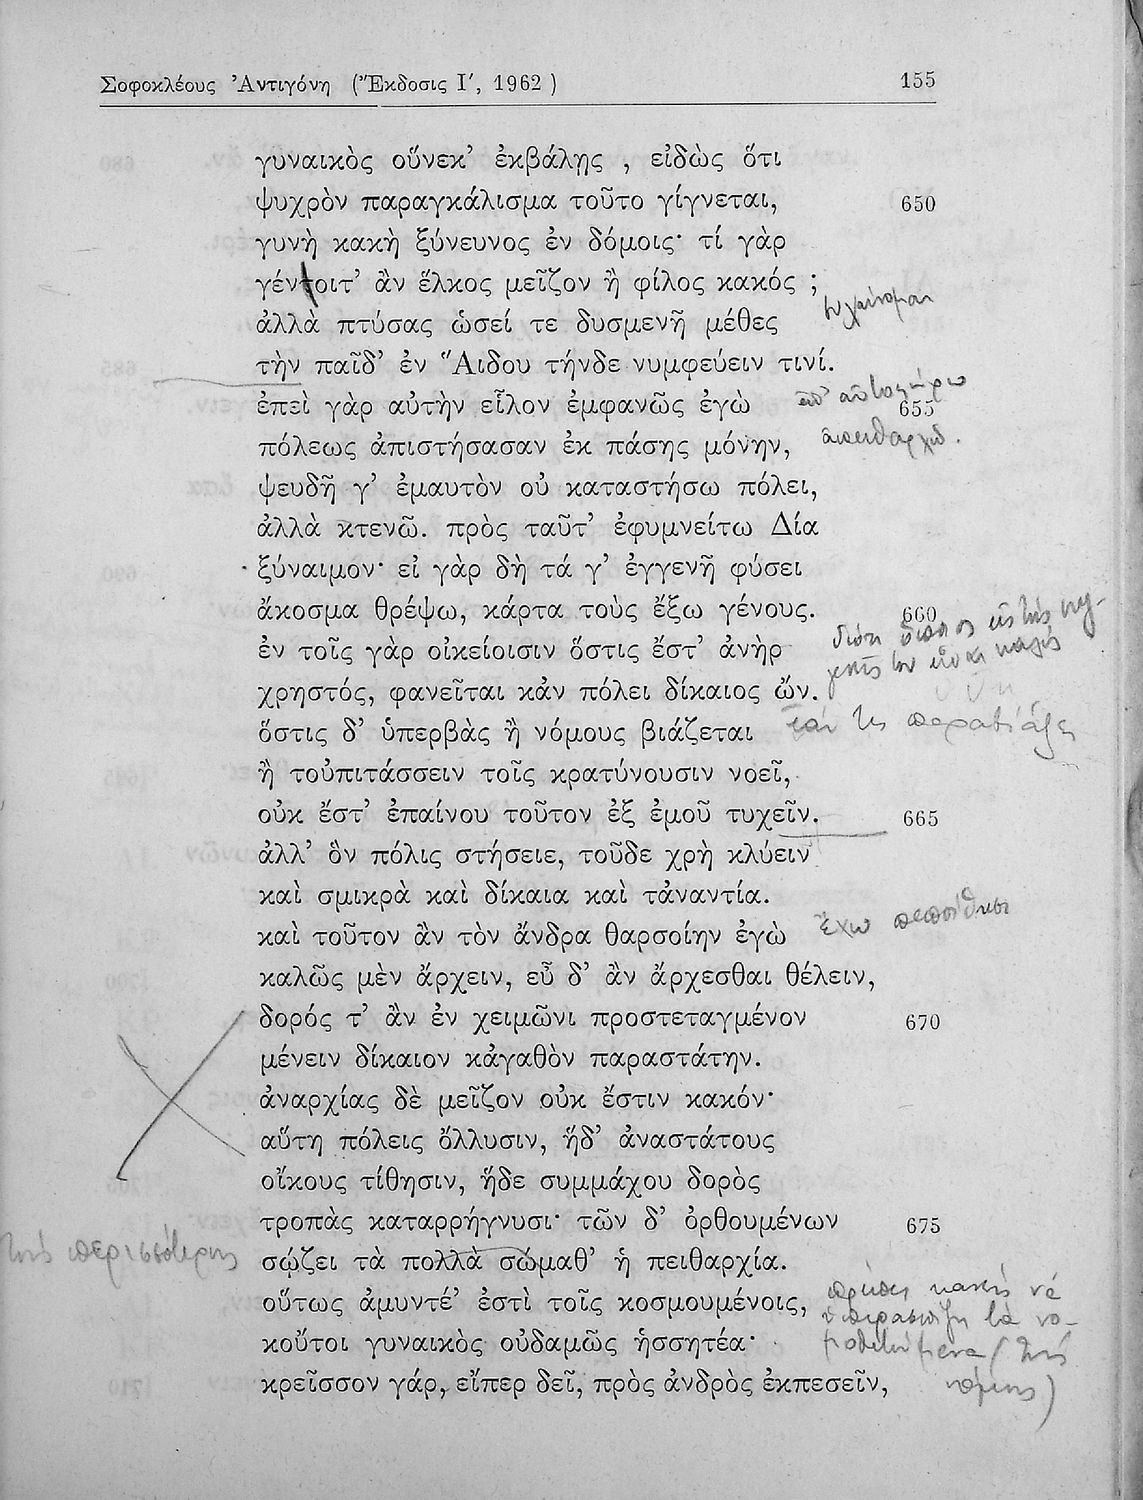 Σοφοκλέους Ἀντιγόνη (Ἔκδοσις Ι′, 1962) 155
γυναικὸς οὕνεκ’ ἐκβάλῃς , εἰδὼς ὅτι
ψυχρὸν παραγκάλισμα τοῦτο γίγνεται, 650
γυνὴ κακὴ ξύνευνος ἐν δόμοις· τί γὰρ
γέντοιτ’ ἂν ἕλκος μεῖζον ἢ φίλος κακός ;
ἀλλὰ πτύσας ὡσεί τε δυσμενῆ μέθες
τὴν παῖδ’ ἐν Ἅιδου τήνδε νυμφεύειν τινί.
ἐπεὶ γὰρ αὐτὴν εἷλον ἐμφανῶς ἐγὼ ἐπ’ αὐτοφώρῳ 655
πόλεως ἀπιστήσασαν ἐκ πάσης μόνην, ἀπειθαρχῶ.
ψευδῆ γ’ ἐμαυτὸν οὐ καταστήσω πόλει,
ἀλλὰ κτενῶ. πρὸς ταῦτ’ ἐφυμνείτω Δία
ξύναιμον· εἰ γὰρ δὴ τά γ’ ἐγγενῆ φύσει
ἄκοσμα θρέψω, κάρτα τοὺς ἔξω γένους. 660
ἐν τοῖς γὰρ οἰκείοισιν ὅστις ἔστ’ ἀνὴρ διότι
χρηστός, φανεῖται κἀν πόλει δίκαιος ὤν.
ὅστις δ’ ὑπερβὰς ἢ νόμους βιάζεται ἐάν τις παραβιάζει
ἢ τοὐπιτάσσειν τοῖς κρατύνουσιν νοεῖ,
οὐκ ἔστ’ ἐπαίνου τοῦτον ἐξ ἐμοῦ τυχεῖν. 665
ἀλλ’ ὃν πόλις στήσειε, τοῦδε χρὴ κλύειν
καὶ σμικρὰ καὶ δίκαια καὶ τἀναντία.
καὶ τοῦτον ἂν τὸν ἄνδρα θαρσοίην ἐγὼ ἔχω πεποίθησι
καλῶς μὲν ἄρχειν, εὖ δ’ ἂν ἄρχεσθαι θέλειν,
δορός τ’ ἂν ἐν χειμῶνι προστεταγμένον 670
μένειν δίκαιον κἀγαθὸν παραστάτην.
ἀναρχίας δὲ μεῖζον οὐκ ἔστιν κακόν·
αὕτη πόλεις ὄλλυσιν, ἥδ’ ἀναστάτους
οἴκους τίθησιν, ἥδε συμμάχου δορὸς
τροπὰς καταρρήγνυσι· τῶν δ’ ὀρθουμένων 675
περισσότερους σῴζει τὰ πολλὰ σώμαθ’ ἡ πειθαρχία.
οὕτως ἀμυντέ’ ἐστὶ τοῖς κοσμουμένοις, πρέπει κανείς νά
κοὔτοι γυναικὸς οὐδαμῶς ἡσσητέα·
κρεῖσσον γάρ, εἴπερ δεῖ, πρὸς ἀνδρὸς ἐκπεσεῖν,